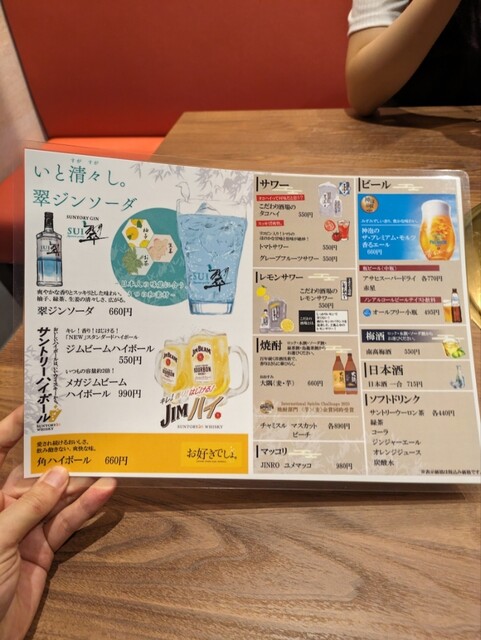 いと清々し。
すがすが
翠ジンソーダ
SUNTORY GIN
SUI 翠
SUI 翠
爽やかな香りとスッキリとした味わい。
柚子、緑茶、生姜の清々しさ、広がる。
翠ジンソーダ 660円
サントリーハイボール
SUNTORY WHISKY
キレ!香り!はじける!
「NEW」スタンダードハイボール
ジムビームハイボール
550円
いつもの容量の2倍!
メガジムビーム
ハイボール 990円
JIM BEAM
BOURBON
JIMハイ。
SUNTORY WHISKY
愛され続けるおいしさ。
飲み飽きない、爽快な味。
角ハイボール 660円
お好きでしょ。
サワー
こだわり酒場の
タコハイ
550円
トマトサワー 550円
グレープフルーツサワー 550円
レモンサワー
こだわり酒場の
レモンサワー
550円
焼酎
大隅(麦・芋) 660円
チャミスル マスカット 各880円
ピーチ
マッコリ
JINRO ユメマッコ 980円
ビール
神泡の
ザ・プレミアム・モルツ
香るエール
660円
瓶ビール(中瓶)
アサヒスーパードライ 各770円
赤星
ノンアルコールビールテイスト飲料
オールフリー小瓶 495円
梅酒
南高梅酒 550円
日本酒
日本酒 一合 715円
ソフトドリンク
サントリーウーロン茶 各440円
緑茶
コーラ
ジンジャーエール
オレンジジュース
炭酸水
※表示価格は税込み価格です。